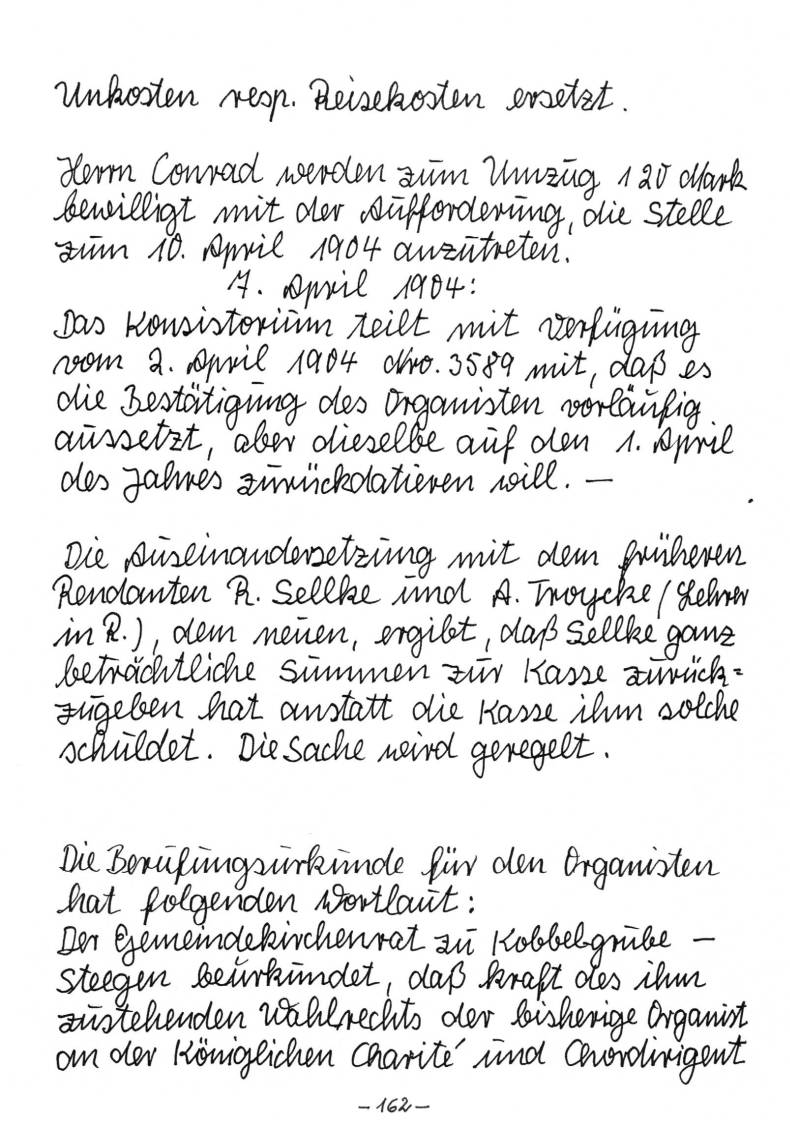 Unkosten resp. Reisekosten ersetzt.
Herrn Conrad werden zum Umzug 120 Mark
bewilligt mit der Aufforderung, die Stelle
zum 10. April 1904 anzutreten.
7. April 1904:
Das Konsistorium teilt mit Verfügung
vom 2. April 1904 Nro. 3589 mit, daß es
die Bestätigung des Organisten vorläufig
aussetzt, aber dieselbe auf den 1. April
des Jahres zurückdatieren will. —
Die Auseinandersetzung mit dem früheren
Rendanten R. Sellke und A. Troycke (Lehrer
in R.), dem neuen, ergibt, daß Sellke ganz
beträchtliche Summen zur Kasse zurück=
zugeben hat anstatt die Kasse ihm solche
schuldet. Die Sache wird geregelt.
Die Berufungsurkunde für den Organisten
hat folgenden Wortlaut:
Der Gemeindekirchenrat zu Kobbelgrube –
Steegen beurkundet, daß kraft des ihm
zustehenden Wahlrechts der bisherige Organist
an der Königlichen Charité und Chordirigent
-162-